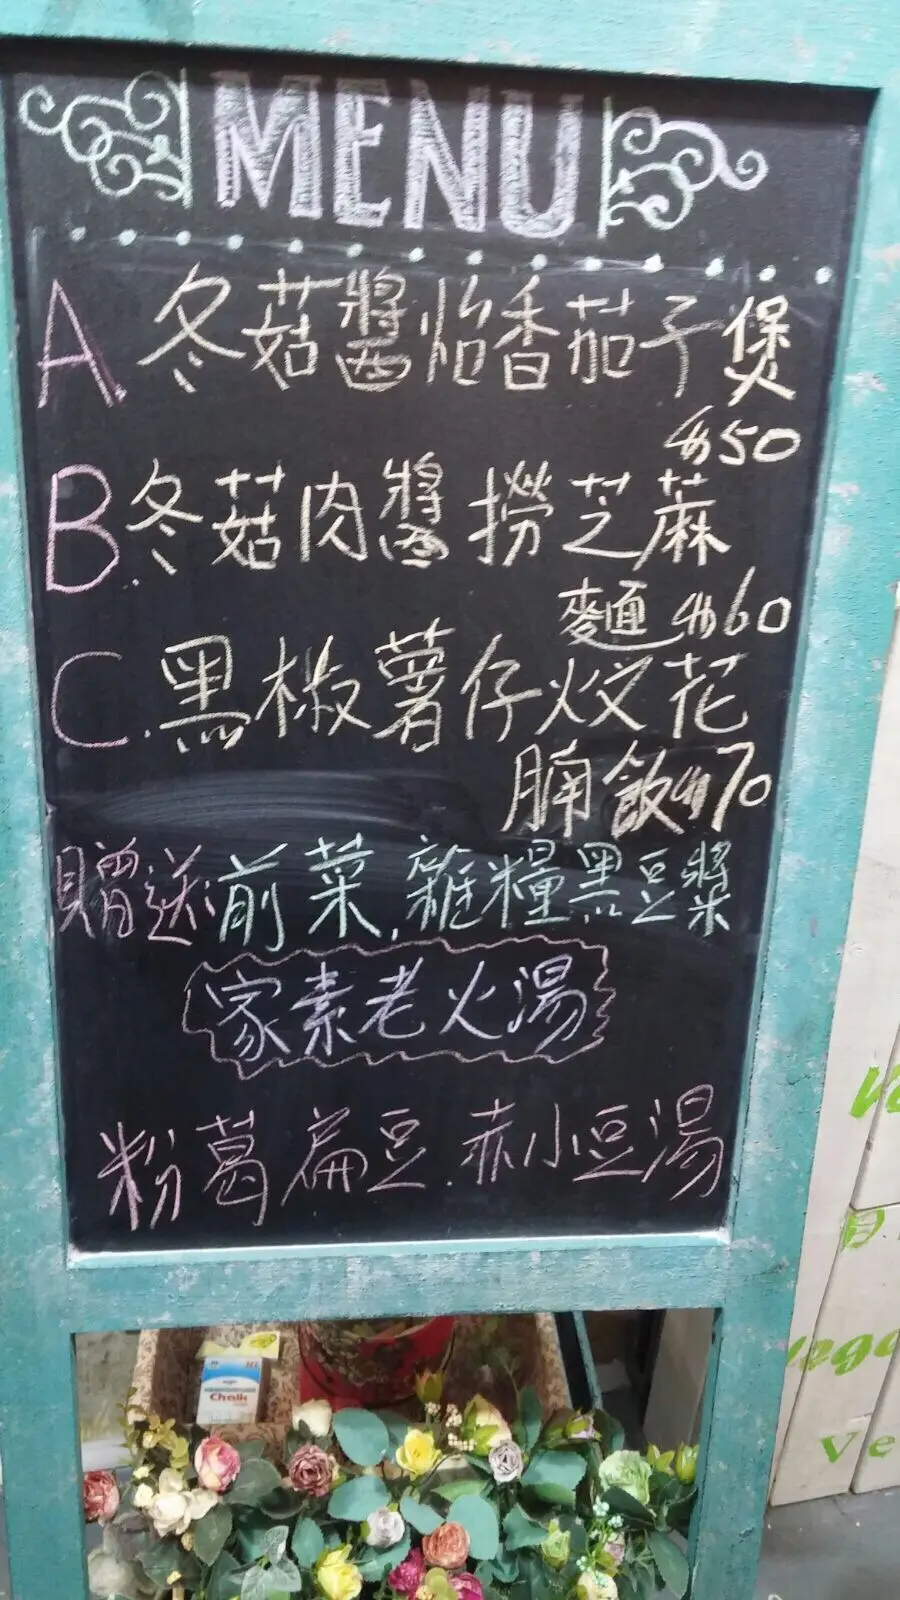 MENU
A. 冬菇醬怡香茄子煲
$50
B. 冬菇肉醬撈芝蔴
麵 $60
C. 黑椒薯仔炆花
腩飯 $70
贈送:前菜,雜糧黑豆漿
家素老火湯
粉葛扁豆.赤小豆湯
Chalk